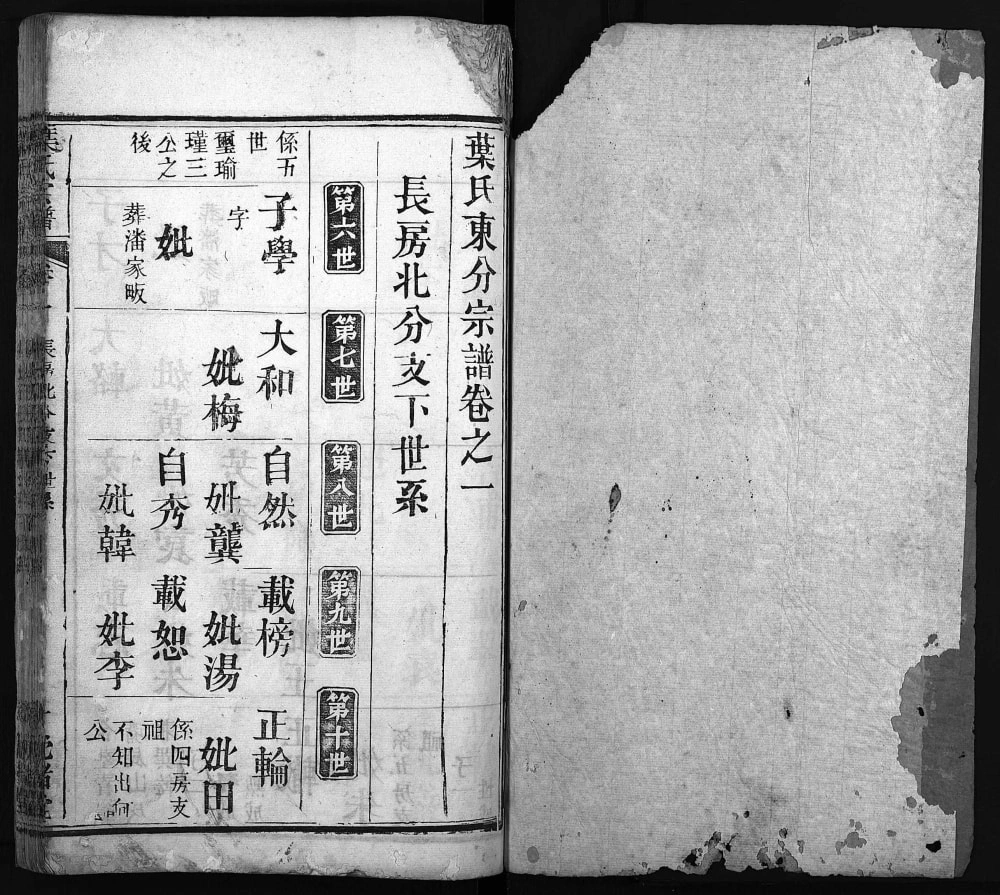 葉氏東分宗譜卷之一
長房北分支下世系
第六世
第七世
第八世
第九世
第十世
係五世
璽瑜
瑾三
公之
後
子學
字
妣
葬潘家畈
大和
妣梅
自然
妣龔
自秀
妣韓
載榜
妣湯
載恕
妣李
正輪
妣田
係四房支
祖
不知出何
公
葉氏宗譜
卷一
長房北分支下世系